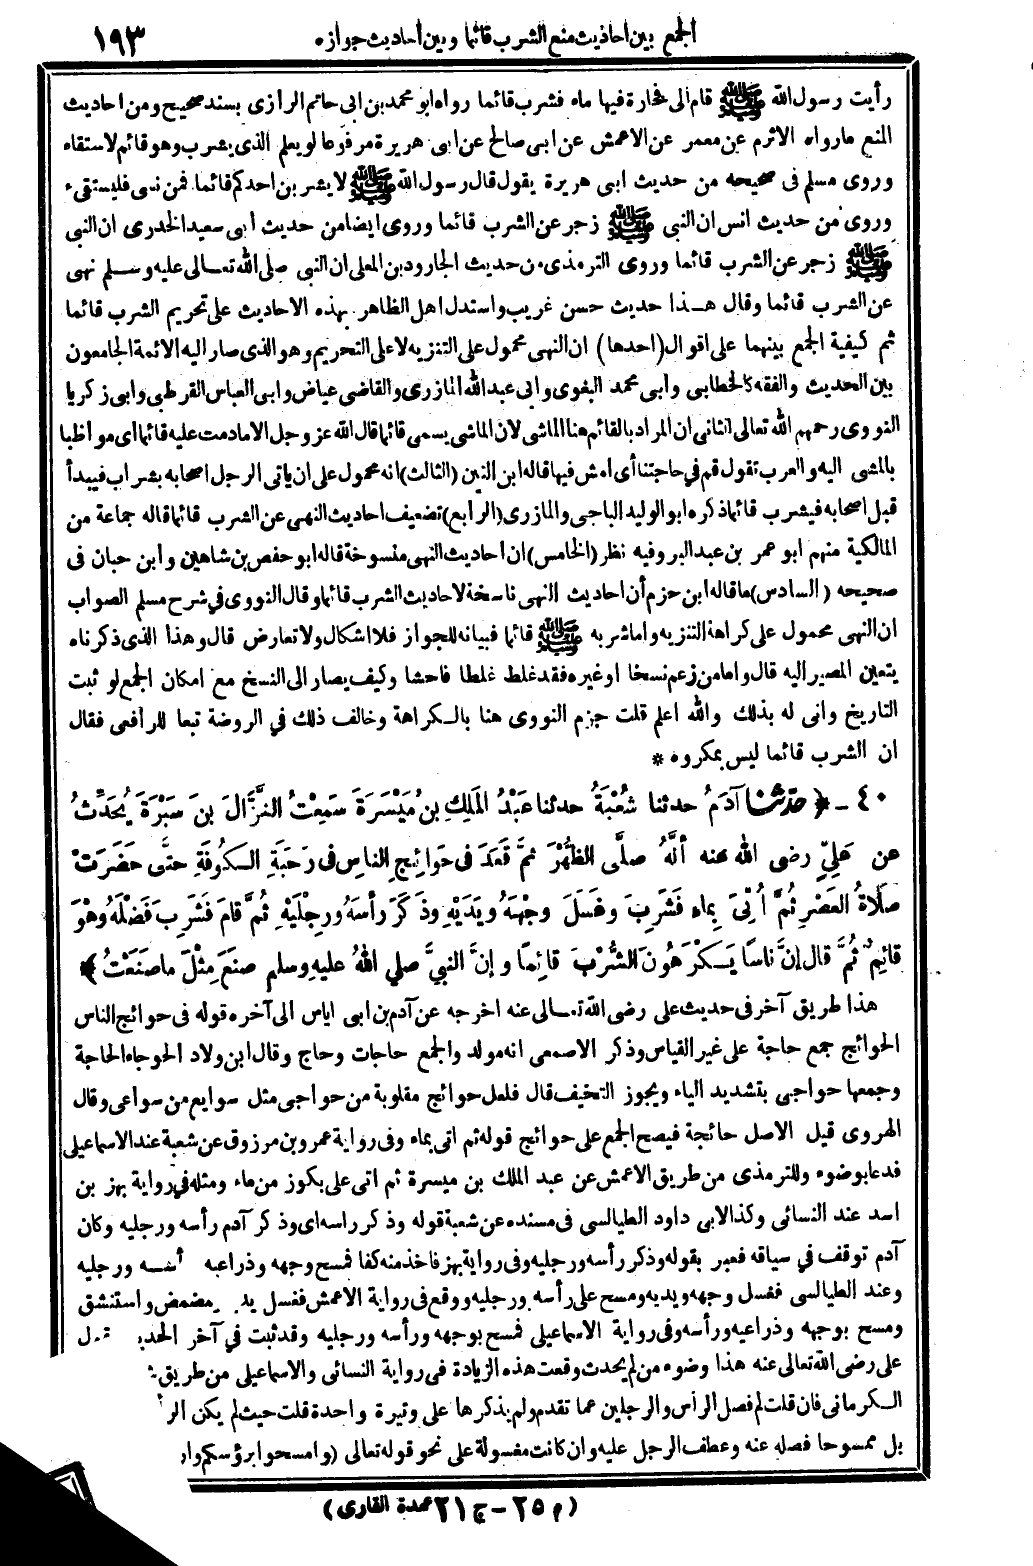 الجمع بين احاديث منع الشرب قائما وبين أحاديث جوازه ١٩٣
رأيت رسول الله ﷺ قام الى فخارة فيها ماء فشرب قائما رواه ابو محمد بن ابى حاتم الرازى بسند صحيح ومن احاديث
المنع مارواه الاثرم عن معمر عن الاعمش عن ابى صالح عن ابى هريرة مرفوعا لو يعلم الذى يشرب وهو قائم لاستقاء
وروى مسلم فى صحيحه من حديث ابى هريرة يقول قال رسول الله ﷺ لا يشربن احدكم قائما فمن نسى فليستقىء
وروى من حديث انس ان النبى ﷺ زجر عن الشرب قائما وروى ايضا من حديث أبى سعيد الخدرى ان النبى
ﷺ زجر عن الشرب قائما وروى الترمذى من حديث الجارود بن المعلى ان النبى صلى الله تعالى عليه وسلم نهى
عن الشرب قائما وقال هذا حديث حسن غريب واستدل اهل الظاهر بهذه الاحاديث على تحريم الشرب قائما
ثم كيفية الجمع بينهما على اقوال (احدها) ان النهى محمول على التنزيه لا على التحريم وهو الذى صار اليه الائمة الجامعون
بين الحديث والفقه كالخطابى وأبى محمد البغوى وابى عبد الله المازرى والقاضى عياض وابى العباس القرطبى وابى زكريا
النووى رحمهم الله تعالى الثانى ان المراد بالقائم هنا الماشى لان الماشى يسمى قائما قال الله عز وجل الا مادمت عليه قائما اى مواظبا
بالمشى اليه والعرب تقول قم في حاجتنا أى امش فيها قاله ابن التين (الثالث) انه محمول على ان ياتى الرجل اصحابه بشراب فيبدأ
قبل اصحابه فيشرب قائما ذكره ابو الوليد الباجى والمازرى (الرابع) تضعيف احاديث النهى عن الشرب قائما قاله جماعة من
المالكية منهم ابو عمر بن عبد البر وفيه نظر (الخامس) ان أحاديث النهى منسوخة قاله ابو حفص بن شاهين وابن حبان فى
صحيحه (السادس) ما قاله ابن حزم أن احاديث النهى ناسخة لاحاديث الشرب قائما وقال النووى في شرح مسلم الصواب
ان النهى محمول على كراهة التنزيه واما شربه ﷺ قائما فبيانه للجواز فلا اشكال ولا تعارض قال وهذا الذى ذكرناه
يتعين المصير اليه قال واما من زعم نسخا او غيره فقد غلط غلطا فاحشا وكيف يصار الى النسخ مع امكان الجمع لو ثبت
التاريخ وانى له بذلك والله اعلم قلت جزم النووى هنا بالكراهة وخالف ذلك في الروضة تبعا للرافعى فقال
ان الشرب قائما ليس بمكروه *
٤٠ - ﴿ حدثنا آدَمُ حدثنا شُعْبَةُ حدثنا عَبْدُ المَلِكِ بنُ مَيْسَرَةَ سَمِعْتُ النَّزَّالَ بنَ سَبْرَةَ يُحَدِّثُ
عن عَلِيٍّ رضى الله عنه أنَّهُ صلَّى الظُّهْرَ ثمَّ قَعَدَ فى حَوَائِجِ الناسِ فى رَحَبَةِ الكُوفَةِ حتَّى حَضَرَتْ
صلاةُ العَصْرِ ثُمَّ أُتِىَ بِماءٍ فَشَرِبَ وغَسَلَ وجْهَهُ ويَدَيْهِ وذَكَرَ رأسَهُ ورِجْلَيْهِ ثُمَّ قامَ فَشَرِبَ فَضْلَهُ وهْوَ
قائِمٌ ثُمَّ قال إنَّ ناسًا يَكْرَهُونَ الشُّرْبَ قائِمًا وإنَّ النبيَّ صلي اللهُ عليهِ وسلم صنَعَ مِثْلَ ما صنَعْتُ ﴾
هذا طريق آخر فى حديث على رضى الله تعالى عنه اخرجه عن آدم بن ابى اياس الى آخره قوله فى حوائج الناس
الحوائج جمع حاجة على غير القياس وذكر الاصمعى انه مولد والجمع حاجات وحاج وقال ابن ولاد الحوجاء الحاجة
وجمعها حواجى بتشديد الياء ويجوز التخفيف قال فلعل حوائج مقلوبة من حواجى مثل سوايع من سواعى وقال
الهروى قيل الاصل حائجة فيصح الجمع على حوائج قوله ثم اتى بماء وفى رواية عمرو بن مرزوق عن شعبة عند الاسماعيلى
فدعا بوضوء وللترمذى من طريق الاعمش عن عبد الملك بن ميسرة ثم اتى على بكوز من ماء ومثله في رواية بهز بن
اسد عند النسائى وكذا لابى داود الطيالسى فى مسنده عن شعبة قوله وذكر راسه اى وذكر آدم رأسه ورجليه وكان
آدم توقف في سياقه فعبر بقوله وذكر رأسه ورجليه وفى رواية بهز فاخذ منه كفا فمسح وجهه وذراعيه ورجليه
وعند الطيالسى فغسل وجهه ويديه ومسح على رأسه ورجليه ووقع فى رواية الاعمش فغسل مضمض واستنشق
ومسح بوجهه وذراعيه ورأسه وفى رواية الاسماعيلى فمسح بوجهه ورأسه ورجليه وقد ثبت في آخر
على رضى الله تعالى عنه هذا وضوء من لم يحدث وقعت هذه الزيادة فى رواية النسائى والاسماعيلى من طريق
الكرمانى فان قلت لم فصل الرأس والرجلين عما تقدم ولم يذكرها على وتيرة واحدة قلت حيث لم يكن
بل ممسوحا فصله عنه وعطف الرجل عليه وان كانت مغسولة على نحو قوله تعالى (وامسحوا برؤسكم
(م ٢٥ - ج ٢١ عمدة القارى)